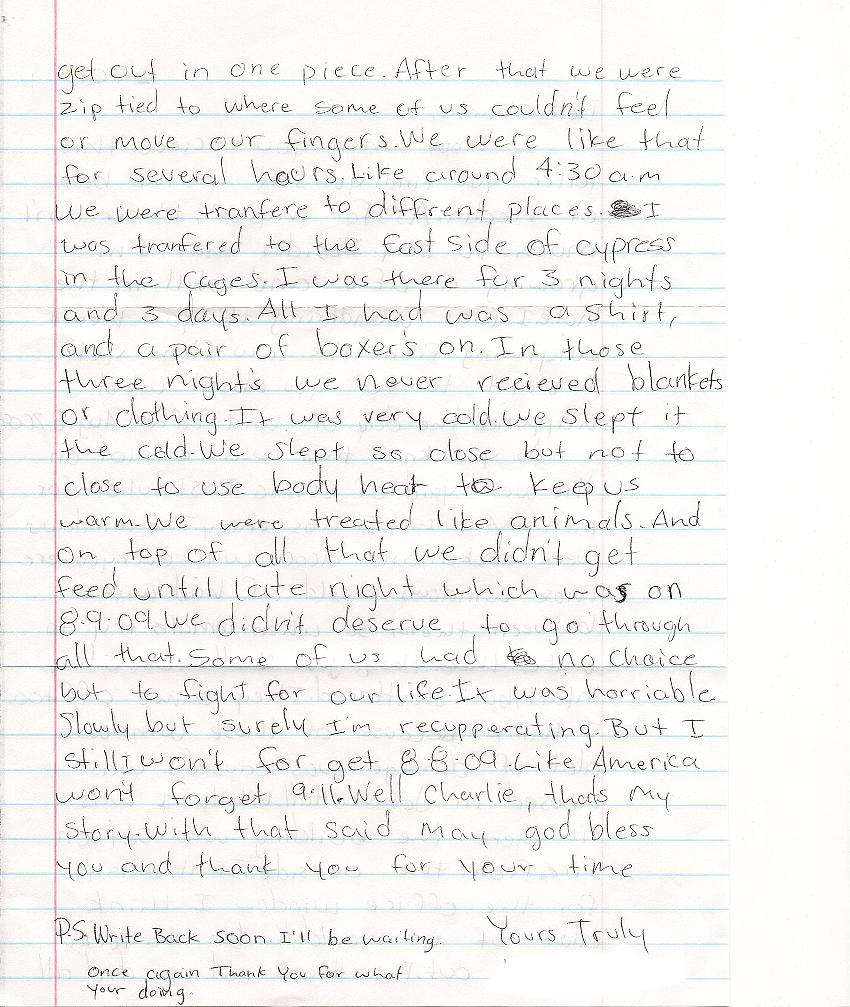 get out in one piece. After that we were
zip tied to where some of us couldn't feel
or move our fingers. We were like that
for several hours. Like around 4:30 a.m
We were tranfere to diffrent places. I
was tranfered to the East side of cypress
in the cages. I was there for 3 nights
and 3 days. All I had was a shirt,
and a pair of boxer's on. In those
three night's we never recieved blankets
or clothing. It was very cold. We slept it
the cold. We slept so close but not to
close to use body heat to keep us
warm. We were treated like animals. And
on top of all that we didn't get
feed until late night which was on
8.9.09. We didn't deserve to go through
all that. Some of us had no choice
but to fight for our life. It was horriable.
Slowly but surely I'm recupperating. But I
still I won't for get 8.8.09. Like America
won't forget 9.11. Well Charlie, thats My
story. With that said may god bless
you and thank you for your time
P.S. Write Back soon. I'll be waiting. Yours Truly
Once again Thank You For what
Your doing.